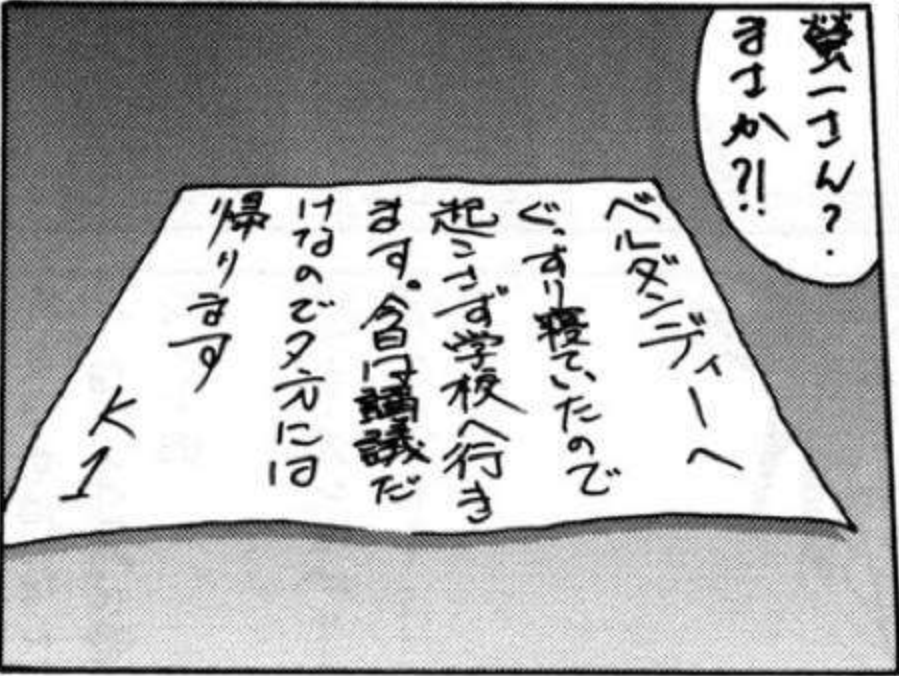 螢一さん?
まさか?!
ベルダンディーへ
ぐっすり寝ていたので
起こさず学校へ行き
ます。今日は講議だ
けなので夕方には
帰ります
K1